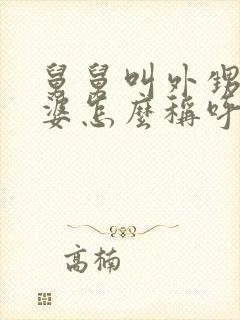 舅舅叫外甥
婆怎麼稱呼
高楠